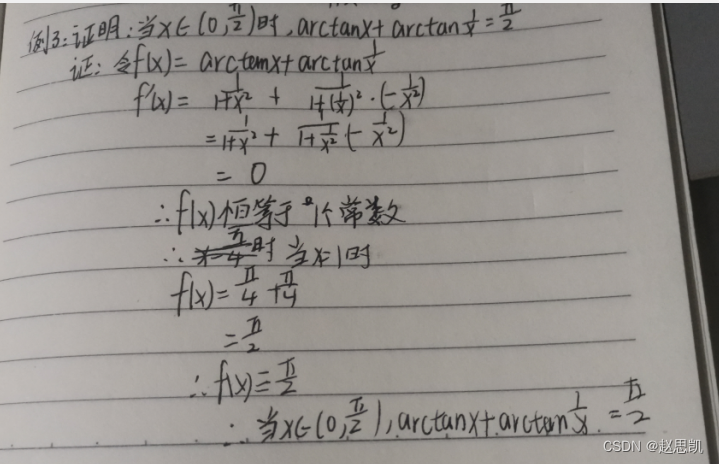 例3:证明:当x∈(0,π/2)时,arctanx+arctan1/x=π/2
证:令f(x)=arctanx+arctan1/x
f'(x)=1/(1+x²)+1/(1+(1/x)²)·(-1/x²)
=1/(1+x²)+1/(1+1/x²)(-1/x²)
=0
∴f(x)恒等于 个常数
∴x=π/4时 当x=1时
f(x)=π/4+π/4
=π/2
∴f(x)=π/2
∴当x∈(0,π/2),arctanx+arctan1/x=π/2
CSDN @赵思凯